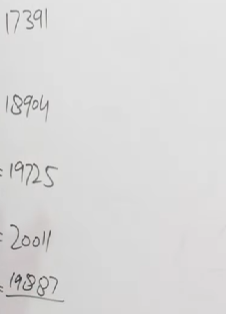 17391
18904
= 19725
= 20011
= 19887